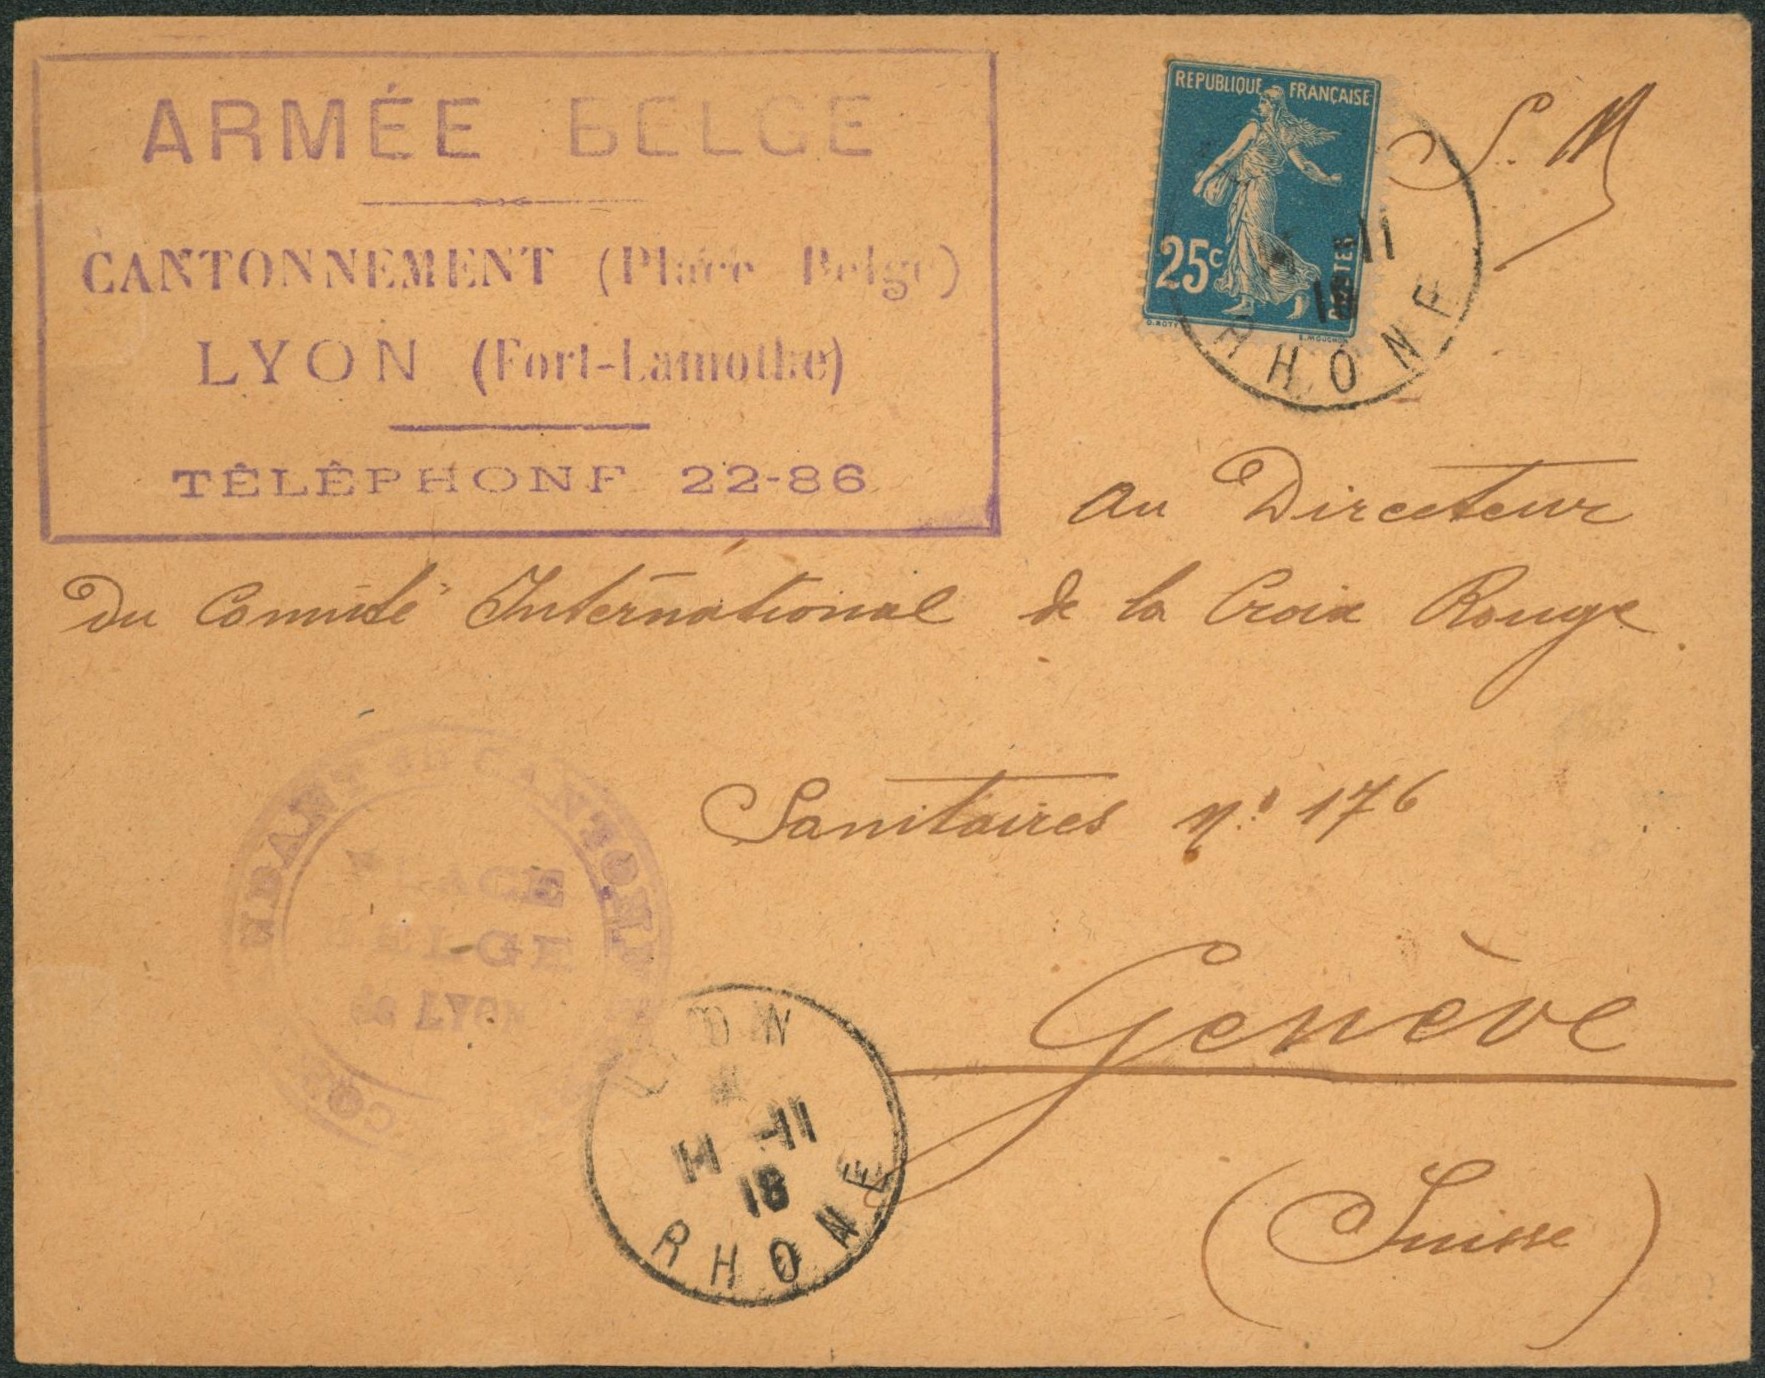 ARMÉE BELGE
CANTONNEMENT (Place Belge)
LYON (Fort-Lamothe)
TÊLÊPHONE 22-86
REPUBLIQUE FRANÇAISE
25c
POSTES
O. ROTY
E. MOUCHON
S. M
-11
18
RHONE
au Directeur
du Comité International de la Croix Rouge
Sanitaires n° 176
Genève
(Suisse)
COMMANDANT du CANTONNEMENT
PLACE
BELGE
de LYON
LYON
-11
18
RHONE